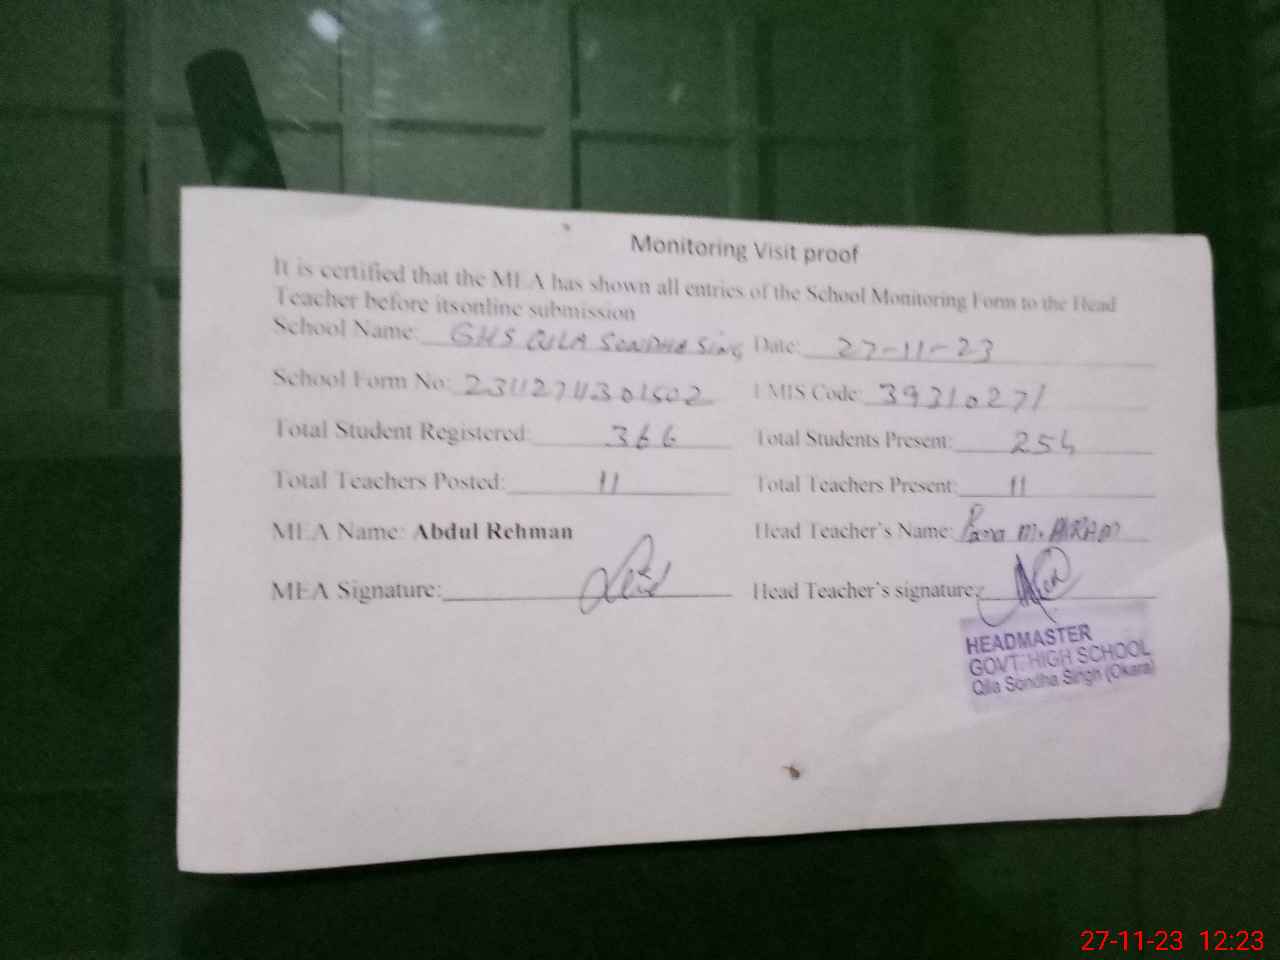 Monitoring Visit proof
It is certified that the MEA has shown all entries of the School Monitoring Form to the Head
Teacher before itsonline submission
School Name: GHS QILA SONDHA SING Date: 27-11-23
School Form No: 23112711301502 EMIS Code: 39310271
Total Student Registered: 366 Total Students Present: 254
Total Teachers Posted: 11 Total Teachers Present: 11
MEA Name: Abdul Rehman Head Teacher's Name: Rana M.
MEA Signature: Head Teacher's signature:
HEADMASTER
GOVT. HIGH SCHOOL
Qila Sondha Singh (Okara)
27-11-23 12:23